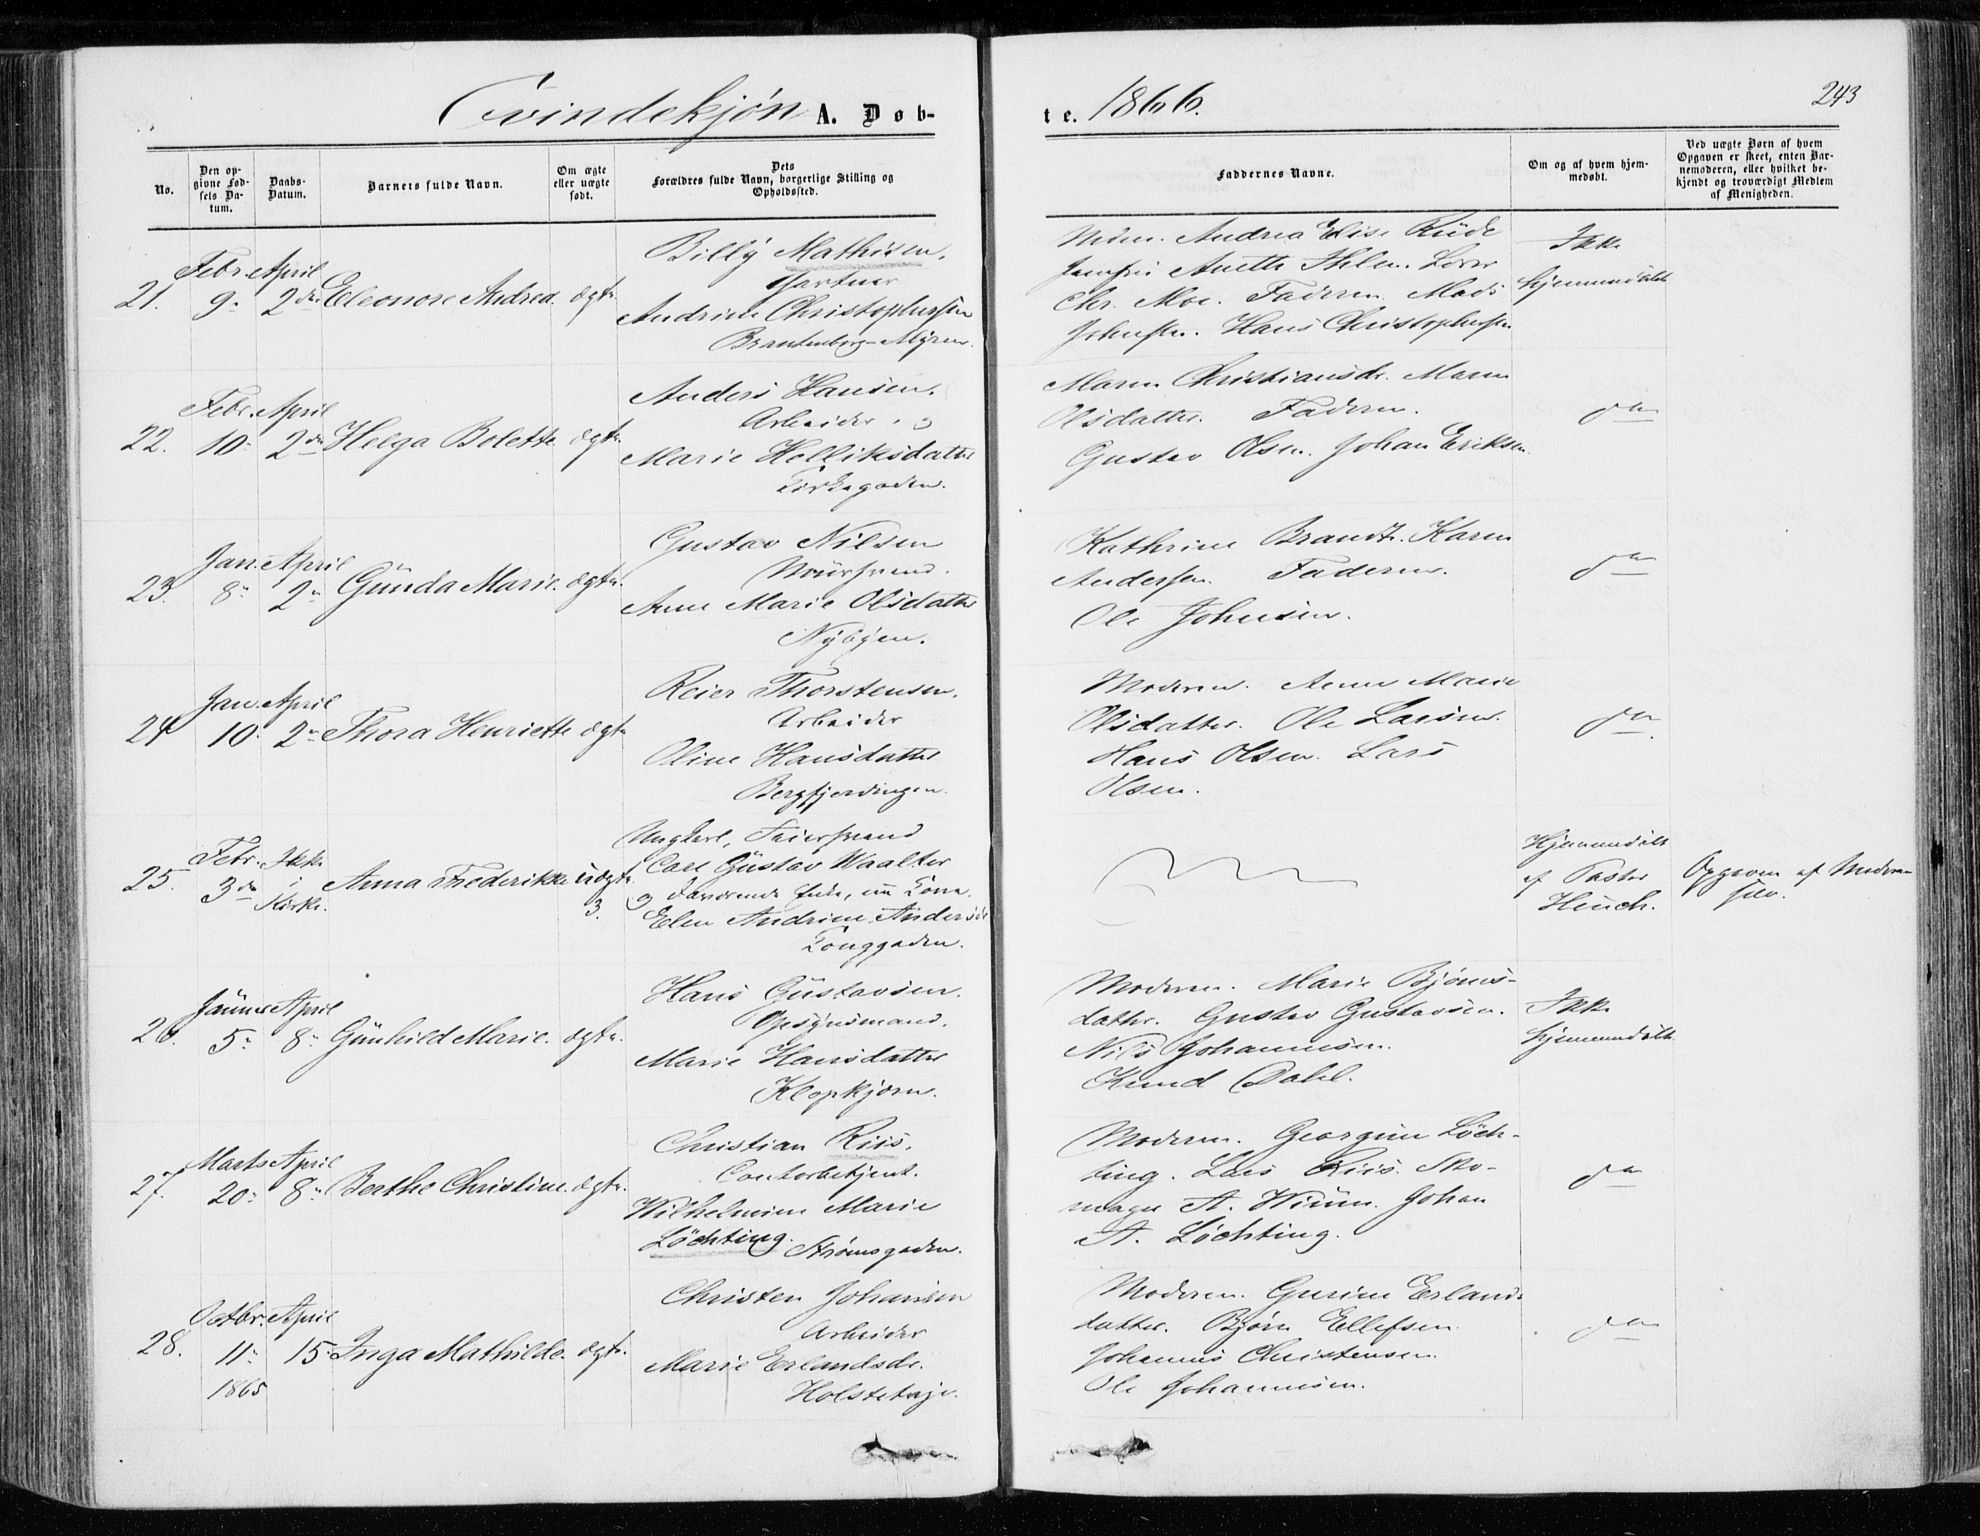 Qvindekjøn A. Døb-
te. 1866.
243
No.
Den op-
givne Fød-
sels Da-
tum.
Daabs-
Datum.
Barnets fulde Navn.
Om ægte
eller uægte
født.
Dets
Forældres fulde Navn, borgerlige Stilling og
Opholdssted.
Faddernes Navne.
Om og af hvem hjem-
medøbt.
Ved uægte Børn af hvem
Opgaven er skeet, enten Bar-
nemoderen, eller hvilket be-
kjendt og troværdigt Medlem
af Menigheden.
21.
Febr.
9
April
2den
Eleonore Andrea
ægte
Billy Mathisen,
Gartner
Andrine Christophersen
Brantenborg-Myren.
Andrea Elise Rüde
Jomfru Anette Ihlen. Lærer
Chr. Moe. Faderen. Mads
Johnsen. Hans Christophersen
Ikke
hjemmedøbt
22.
Febr.
10
April
2den
Helga Bolette
ægte
Anders Hansen.
Arbeider
Marie Holliksdatter
Kirkegaden.
Maren Christiansdr. Maren
Olsdatter. Faderen.
Gustav Olsen. Johan Eriksen.
do
23.
Jan.
8
April
2
Günda Marie.
ægte.
Gustav Nilsen
Muursvend.
Anne Marie Olsdatter
Nybyen.
Kathrine Brandt. Karen
Andersen. Faderen.
Ole Johnsen.
do
24
Jan.
10
April
2
Thora Henriette
ægte
Reier Thorstensen.
Arbeider
Oline Hansdatter
Bergfjerdingen.
Moderen. Anne Marie
Olsdatter. Ole Larsen.
Hans Olsen. Lars
Olsen.
do
25.
Febr.
3die
Ikke
i
Kirke.
Anna Frederikke
uægte
3.
Ungkarl, Feiersvend
Carl Güstav Waalter
og
Elen Andrine Andersdr
Tonggaden.
Hjemmedøbt
af Pastor
Heuch.
Opgaven af Moderen
selv.
26.
Januar
5
April
8
Günhild Marie.
ægte.
Hans Güstavsen.
Opsynsmand.
Marie Hansdatter
Klopkjærn.
Moderen. Marie Bjørns-
datter. Gustav Gustavsen.
Nils Johannesen.
Knud Dahl.
Ikke
hjemmedøbt
27.
Marts
20
April
8
Berthe Christine.
ægte.
Christian Riis.
Contorbetjent.
Wilhelmine Marie
Løchting. Strømsgaden.
Moderen. Georgine Løch-
ting. Lars Riis. Sko-
mager A. Wiüm. Johan
A. Løchting.
do
28.
Octbr.
11
1865
April
15
Inga Mathilde.
ægte.
Christen Johansen
Arbeider
Marie Erlandsdr.
Holstehage.
Moderen. Gurine Erlands-
datter. Bjørn Ellefsen
Johannes Christensen.
Ole Johannesen.
do